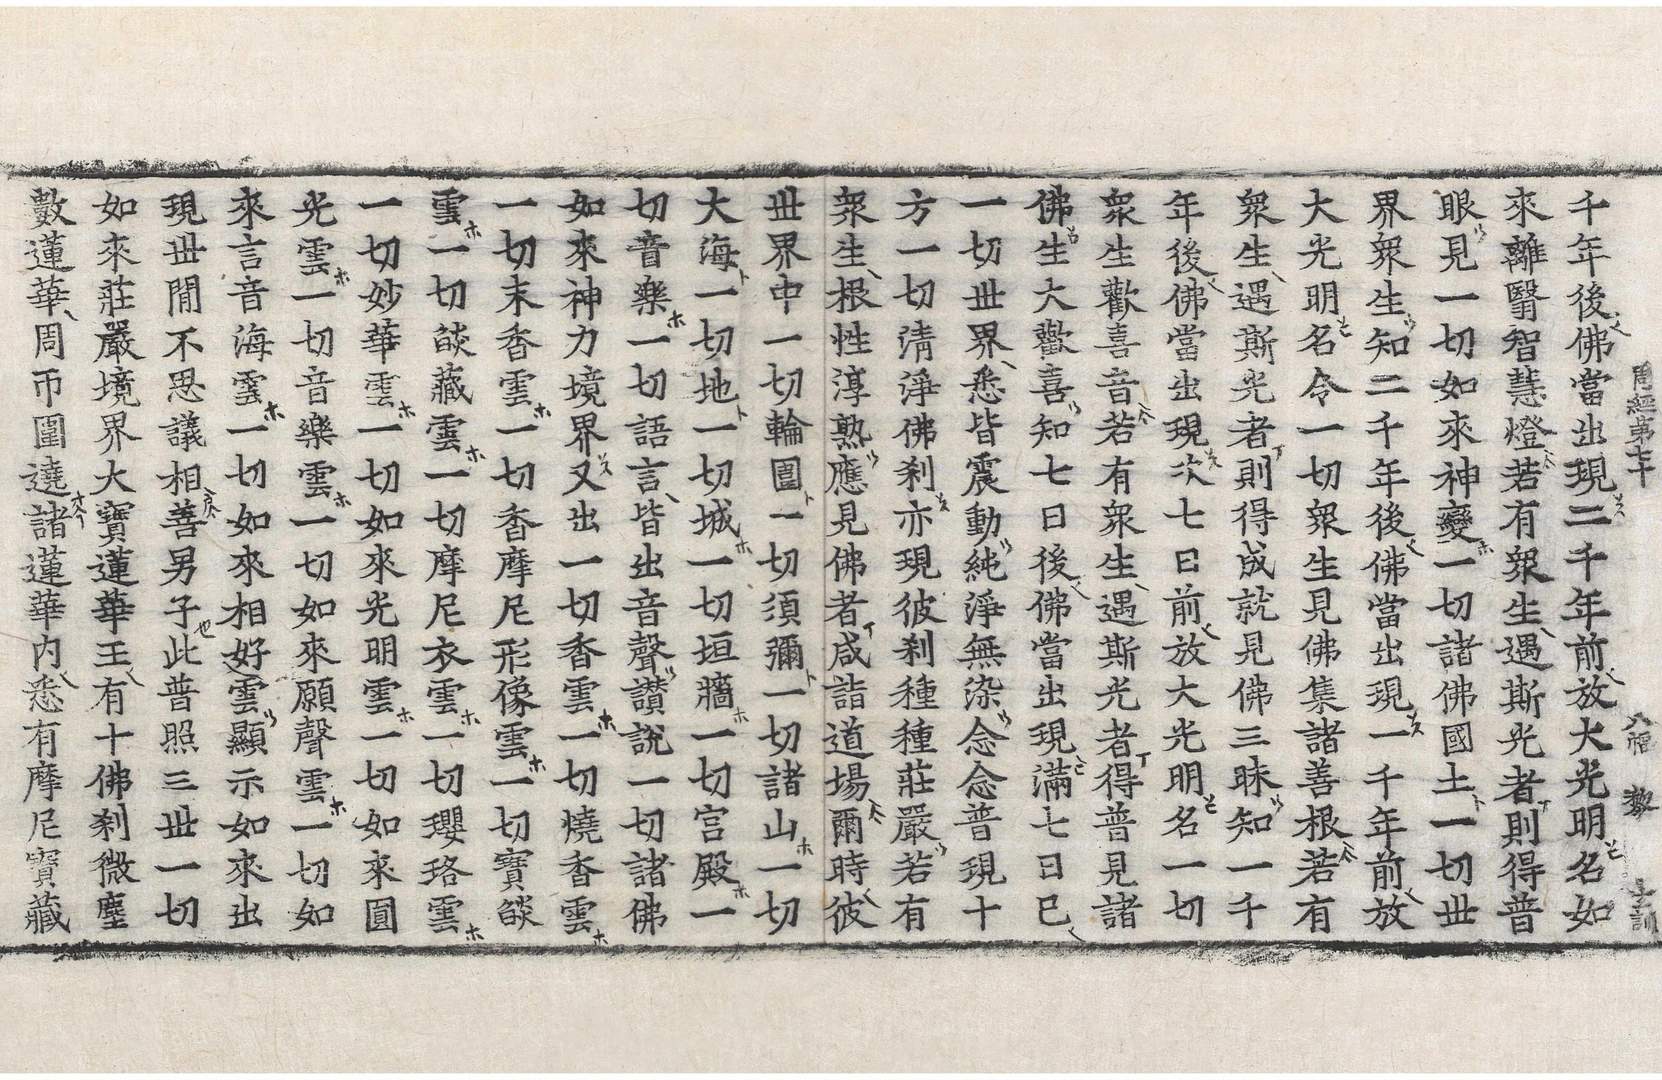 周經第七十 八幅 𢿘 士訓
千年後佛當出現二千年前放大光明名如
來離翳智慧燈若有衆生遇斯光者則得普
眼見一切如來神變一切諸佛國土一切世
界衆生知二千年後佛當出現一千年前放
大光明名令一切衆生見佛集諸善根若有
衆生遇斯光者則得成就見佛三昧知一千
年後佛當出現次七日前放大光明名一切
衆生歡喜音若有衆生遇斯光者得普見諸
佛生大歡喜知七日後佛當出現滿七日已
一切世界悉皆震動純淨無染念念普現十
方一切清淨佛刹亦現彼刹種種莊嚴若有
衆生根性淳熟應見佛者咸詣道場爾時彼
世界中一切輪圍一切須彌一切諸山一切
大海一切地一切城一切垣牆一切宫殿一
切音樂一切語言皆出音聲讃說一切諸佛
如來神力境界又出一切香雲一切燒香雲
一切末香雲一切香摩尼形像雲一切寶𦦨
雲一切𦦨藏雲一切摩尼衣雲一切瓔珞雲
一切妙華雲一切如來光明雲一切如來圓
光雲一切音樂雲一切如來願聲雲一切如
來言音海雲一切如來相好雲顯示如來出
現世間不思議相善男子此普照三世一切
如來莊嚴境界大寶蓮華王有十佛刹微塵
數蓮華周帀圍遶諸蓮華内悉有摩尼寶藏